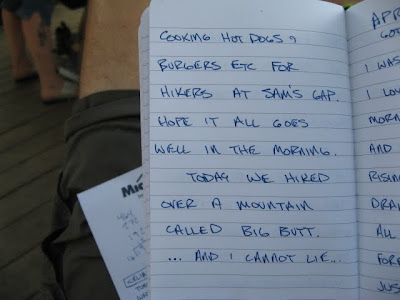 COOKING HOT DOGS,
BURGERS ETC FOR
HIKERS AT SAM'S GAP.
HOPE IT ALL GOES
WELL IN THE MORNING.
TODAY WE HIKED
OVER A MOUNTAIN
CALLED BIG BUTT.
... AND I CANNOT LIE...
APR
GOT
I WAS
I LO
MORN
AND
RISIN
DRA
ALL
FOR
JUS